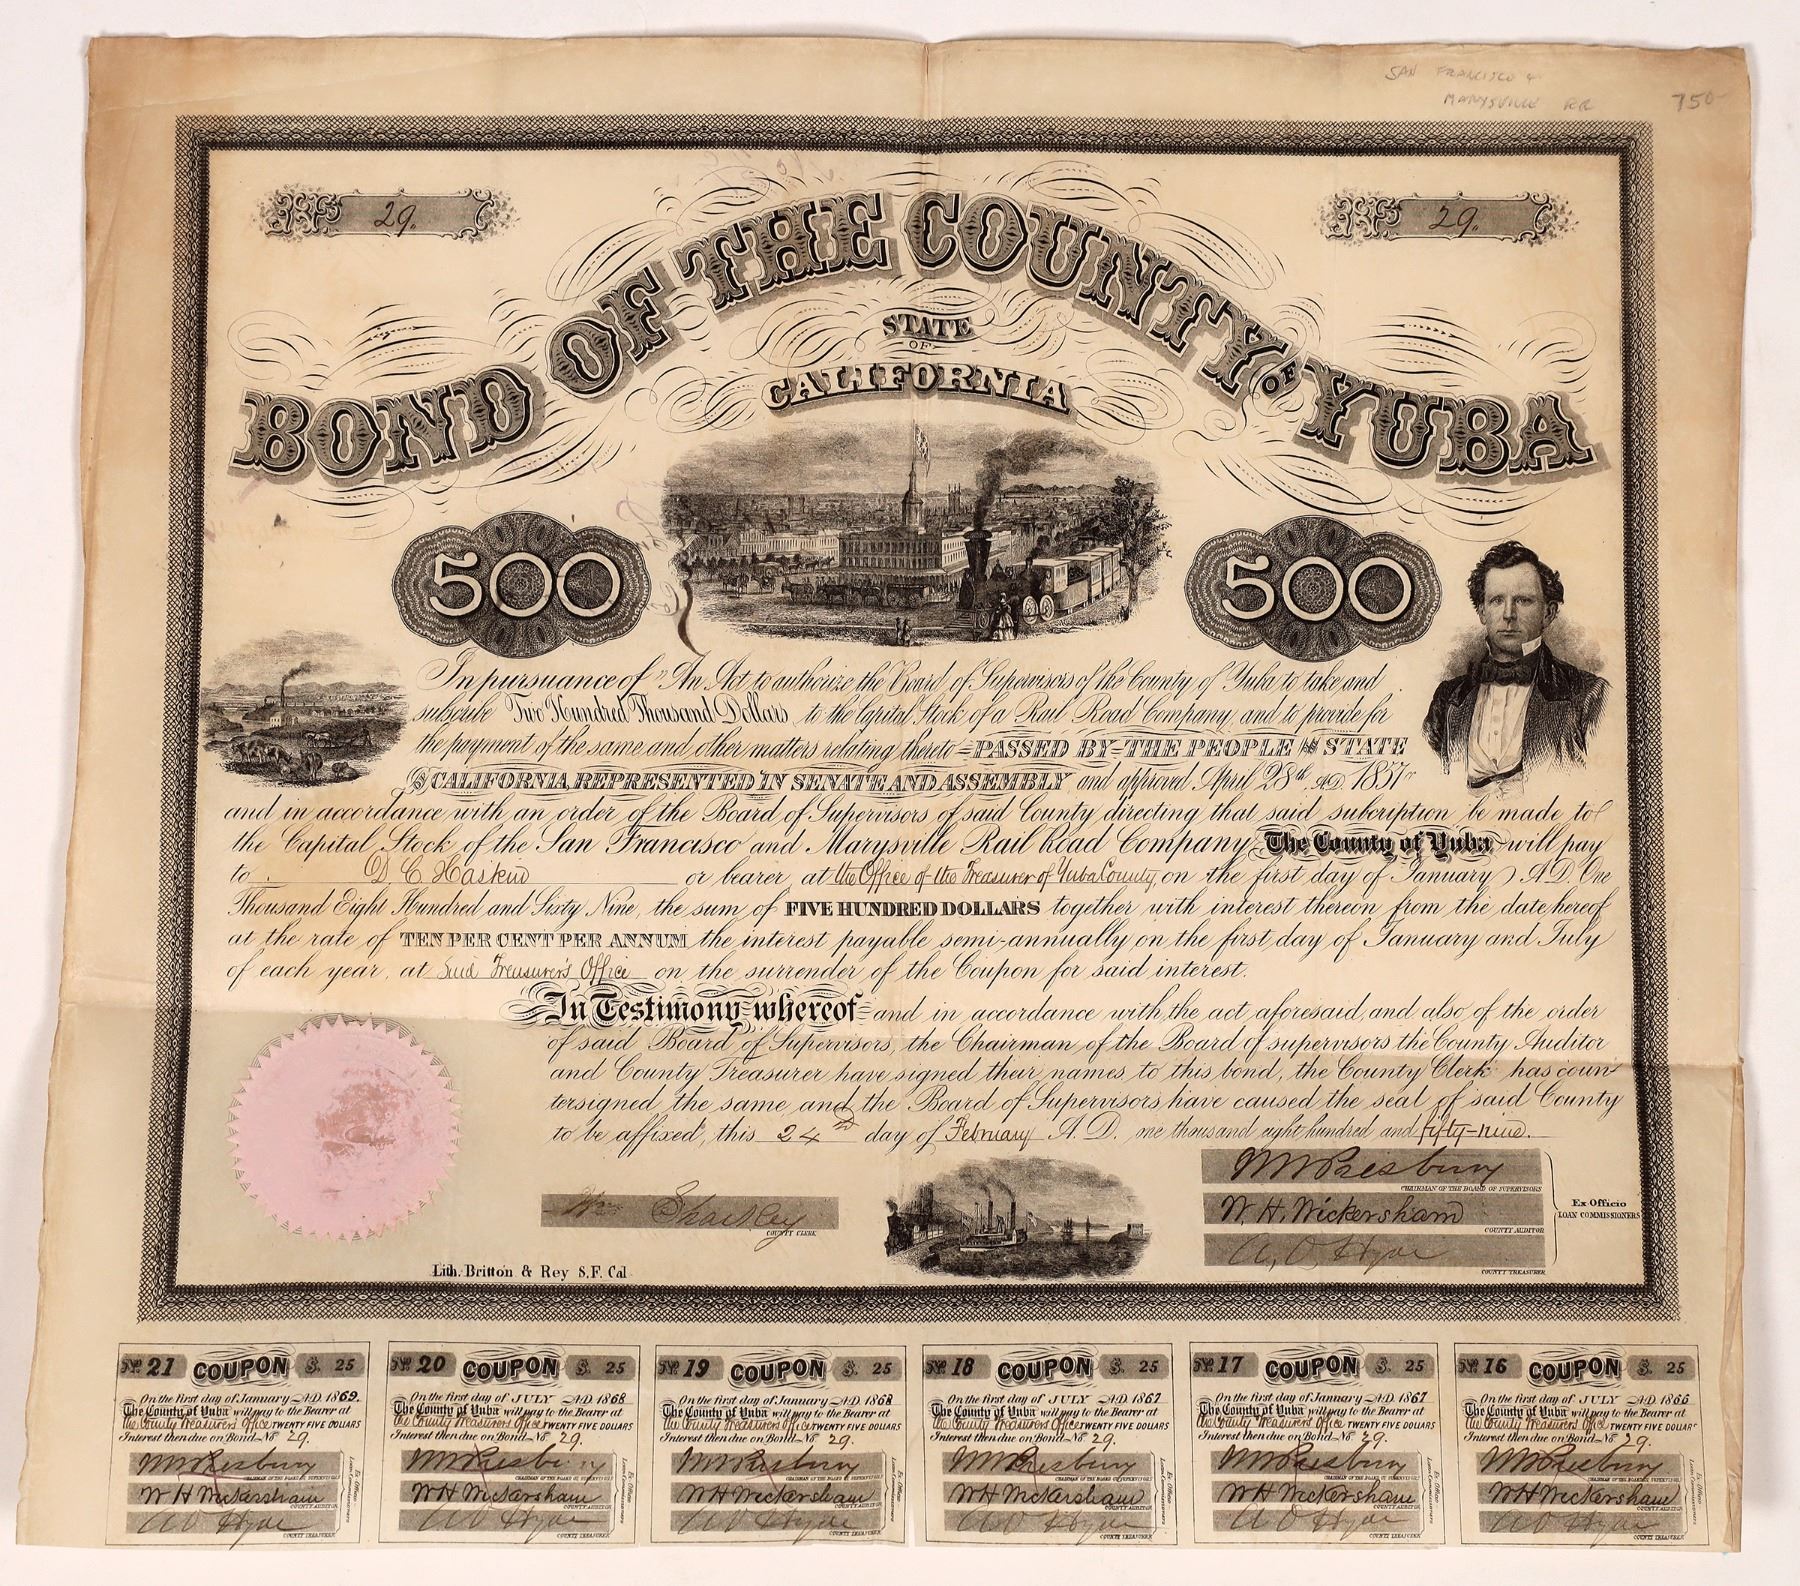 SAN FRANCISCO &
MARYSVILLE RR
750-
No 29.
No 29.
BOND OF THE COUNTY OF YUBA
STATE
OF
CALIFORNIA
500
500
In pursuance of "An Act to authorize the Board of Supervisors of the County of Yuba to take and
subscribe Two Hundred Thousand Dollars, to the Capital Stock of a Rail Road Company, and to provide for
the payment of the same and other matters relating thereto = PASSED BY THE PEOPLE OF THE STATE
OF CALIFORNIA, REPRESENTED IN SENATE AND ASSEMBLY, and approved April 28th, AD 1857"
and in accordance with an order of the Board of Supervisors of said County directing that said subcription be made to
the Capital Stock of the San Francisco and Marysville Rail Road Company, The County of Yuba will pay
to D C Haskin or bearer at the Office of the Treasurer of Yuba County, on the first day of January A.D. One
Thousand Eight Hundred and Sixty Nine, the sum of FIVE HUNDRED DOLLARS together with interest thereon from the date hereof
at the rate of TEN PER CENT PER ANNUM the interest payable semi-annually on the first day of January and July
of each year, at Said Treasurer's Office on the surrender of the Coupon for said interest.
In Testimony whereof and in accordance with the act aforesaid, and also of the order
of said Board of Supervisors, the Chairman of the Board of supervisors the County Auditor
and County Treasurer have signed their names to this bond, the County Clerk has coun-
tersigned the same and the Board of Supervisors have caused the seal of said County
to be affixed, this 24th day of February A.D. one thousand eight hundred and fifty-nine.
Wm Sharkey
COUNTY CLERK
W W Presbury
CHAIRMAN OF THE BOARD OF SUPERVISORS
W. H. Wickersham
COUNTY AUDITOR
A. O. Hyde
COUNTY TREASURER
Ex-Officio
LOAN COMMISSIONERS
Lith. Britton & Rey S.F. Cal
No 21 COUPON $. 25
On the first day of January A.D. 1869.
The County of Yuba will pay to the Bearer at
the County Treasurers Office TWENTY FIVE DOLLARS
Interest then due on Bond No 29.
W W Presbury
CHAIRMAN OF THE BOARD OF SUPERVISORS
W H Wickersham
COUNTY AUDITOR
A O Hyde
COUNTY TREASURER
Ex Officio
Loan Commissioners
No 20 COUPON $. 25
On the first day of JULY A.D. 1868
The County of Yuba will pay to the Bearer at
the County Treasurers Office TWENTY FIVE DOLLARS
Interest then due on Bond No 29.
W W Presbury
CHAIRMAN OF THE BOARD OF SUPERVISORS
W H Wickersham
COUNTY AUDITOR
A O Hyde
COUNTY TREASURER
Ex Officio
Loan Commissioners
No 19 COUPON $. 25
On the first day of January A.D. 1868
The County of Yuba will pay to the Bearer at
the County Treasurers Office TWENTY FIVE DOLLARS
Interest then due on Bond No 29.
W W Presbury
CHAIRMAN OF THE BOARD OF SUPERVISORS
W H Wickersham
COUNTY AUDITOR
A O Hyde
COUNTY TREASURER
Ex Officio
Loan Commissioners
No 18 COUPON $. 25
On the first day of JULY A.D. 1867
The County of Yuba will pay to the Bearer at
the County Treasurers Office TWENTY FIVE DOLLARS
Interest then due on Bond No 29.
W W Presbury
CHAIRMAN OF THE BOARD OF SUPERVISORS
W H Wickersham
COUNTY AUDITOR
A O Hyde
COUNTY TREASURER
Ex Officio
Loan Commissioners
No 17 COUPON $. 25
On the first day of January A.D. 1867
The County of Yuba will pay to the Bearer at
the County Treasurers Office TWENTY FIVE DOLLARS
Interest then due on Bond No 29.
W W Presbury
CHAIRMAN OF THE BOARD OF SUPERVISORS
W H Wickersham
COUNTY AUDITOR
A O Hyde
COUNTY TREASURER
Ex Officio
Loan Commissioners
No 16 COUPON $. 25
On the first day of JULY A.D. 1866
The County of Yuba will pay to the Bearer at
the County Treasurers Office TWENTY FIVE DOLLARS
Interest then due on Bond No 29.
W W Presbury
CHAIRMAN OF THE BOARD OF SUPERVISORS
W H Wickersham
COUNTY AUDITOR
A O Hyde
COUNTY TREASURER
Ex Officio
Loan Commissioners